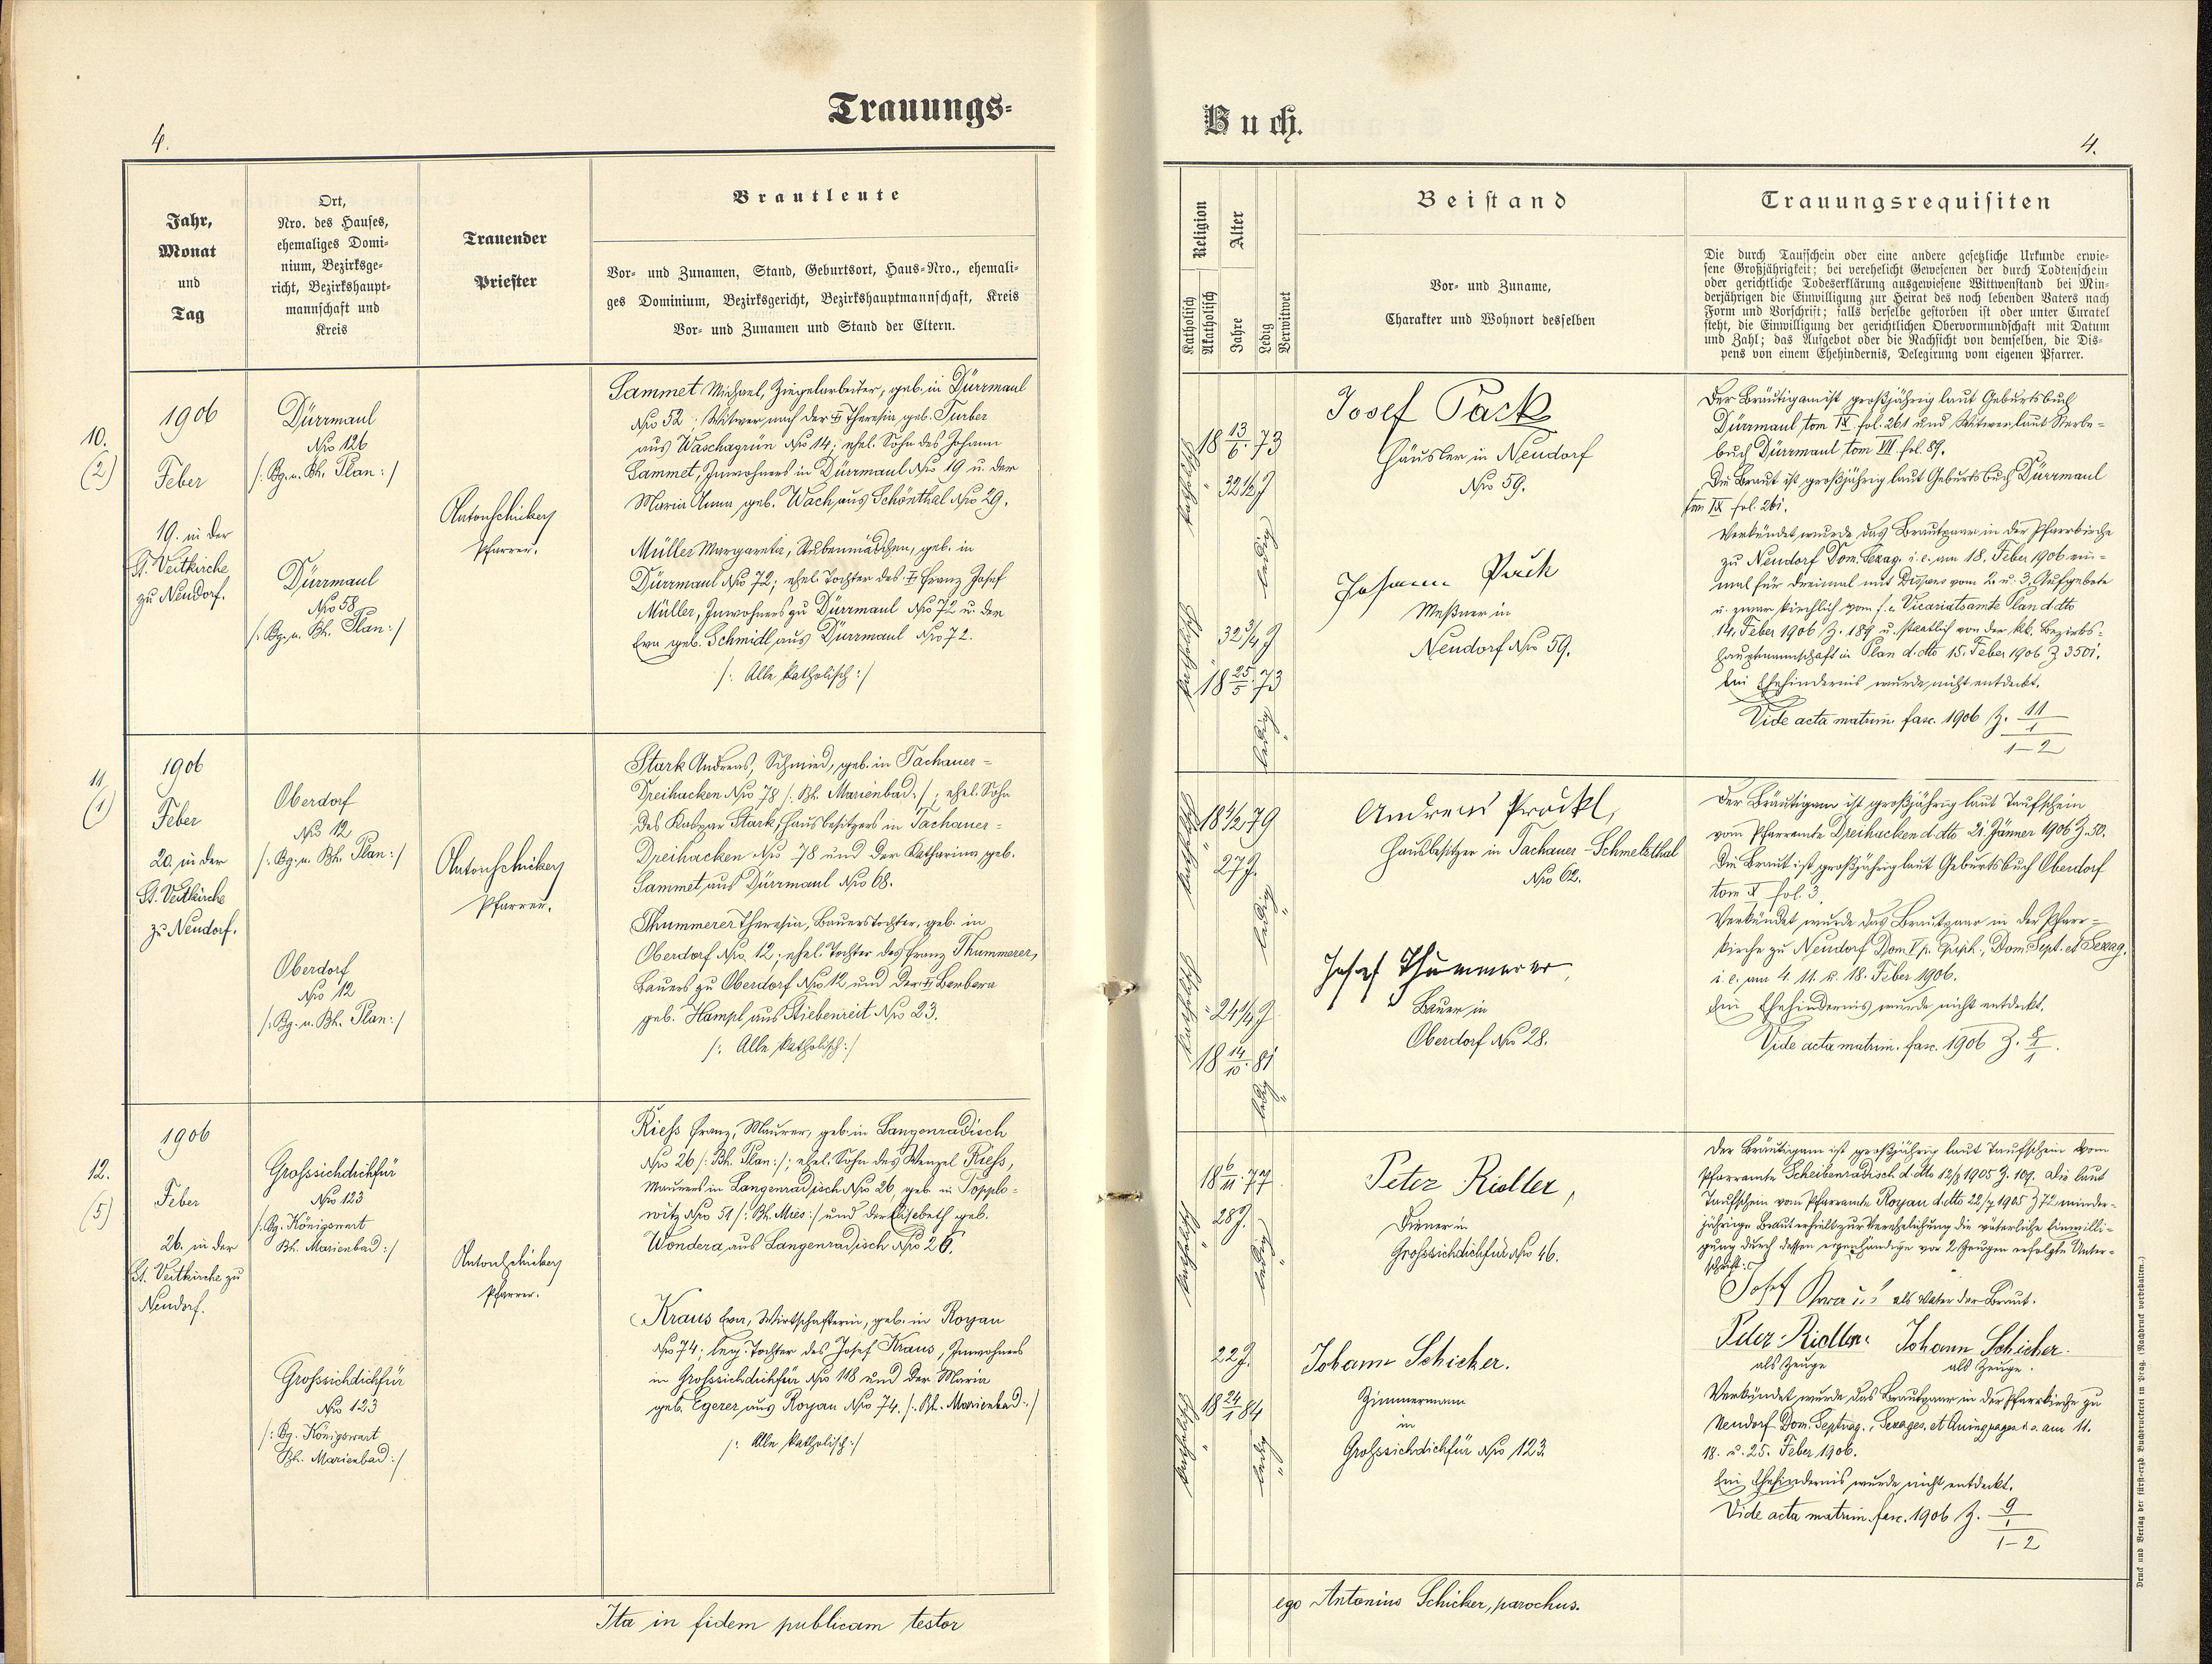 Trauungs-
4.
Jahr,
Monat
und
Tag
Ort,
Nro. des Hauses,
ehemaliges Domi-
nium, Bezirksge-
richt, Bezirkshaupt-
mannschaft und
Kreis
Trauender
Priester
Brautleute
Vor- und Zunamen, Stand, Geburtsort, Haus-Nro., ehemali-
ges Dominium, Bezirksgericht, Bezirkshauptmannschaft, Kreis
Vor- und Zunamen und Stand der Eltern.
10.
(2)
1906
Feber
19. in der
St. Veitkirche
zu Neudorf.
Dürrmaul
Nro 126
/: Bg. u. Bh. Plan :/
Dürrmaul
Nro 58
/: Bg. u. Bh. Plan :/
Anton Schicker
Pfarrer.
Sammet Michael, Ziegelarbeiter, geb. in Dürrmaul
Nro 52; Witwer nach der † Theresia geb. Turber
aus Waschagrün Nro 14; ehel. Sohn des Johann
Sammet, Inwohners in Dürrmaul Nro 19 u. der
Maria Anna geb. Wach aus Schönthal Nro 29.
Müller Margareta, Stubenmädchen, geb. in
Dürrmaul Nro 72; ehel. Tochter des † Franz Josef
Müller, Inwohners zu Dürrmaul Nro 72 u. der
Eva geb. Schmidl aus Dürrmaul Nro 72.
/: Alle katholisch :/
11
(1)
1906
Feber
20. in der
St. Veitkirche
zu Neudorf.
Oberdorf
Nro 12
/: Bg. u. Bh. Plan :/
Oberdorf
Nro 12
/: Bg. u. Bh. Plan :/
Anton Schicker
Pfarrer.
Stark Andreas, Schmied, geb. in Tachauer-
Dreihacken Nro 78 /: Bh. Marienbad :/; ehel. Sohn
des Kaspar Stark, Hausbesitzers in Tachauer-
Dreihacken Nro 78 und der Katharina geb.
Sammet aus Dürrmaul Nro 68.
Thummerer Theresia, Bauerstochter, geb. in
Oberdorf Nro 12; ehel. Tochter des Franz Thummerer,
Bauers zu Oberdorf Nro 12 und der † Barbara
geb. Hampl aus Stiebenreit Nro 23.
/: Alle katholisch :/
12.
(5)
1906
Feber
26. in der
St. Veitkirche zu
Neudorf.
Grosssichdichfür
Nro 123
/: Bg. Königswart
Bh. Marienbad :/
Grosssichdichfür
Nro 123
/: Bg. Königswart
Bh. Marienbad :/
Anton Schicker
Pfarrer.
Riess Franz, Maurer, geb. in Langenradisch
Nro 26 /: Bh. Plan :/; ehel. Sohn des Wenzel Riess,
Maurers in Langenradisch Nro 26, geb. in Topplo-
witz Nro 51 /: Bh. Mies :/ und der Elisabeth geb.
Wondera aus Langenradisch Nro 26.
Kraus Eva, Wirtschafterin, geb. in Royau
Nro 74; leg. Tochter des Josef Kraus, Inwohners
in Grosssichdichfür Nro 118 und der Maria
geb. Egerer aus Royau Nro 74. /: Bh. Marienbad :/
/: Alle katholisch :/
Ita in fidem publicam testor
Buch.
4.
Religion
Katholisch
Akatholisch
Alter
Jahre
Ledig
Verwitwet
Beistand
Vor- und Zuname,
Charakter und Wohnort desselben
Trauungsrequisiten
Die durch Taufschein oder eine andere gesetzliche Urkunde erwie-
sene Großjährigkeit; bei verehelicht Gewesenen der durch Todtenschein
oder gerichtliche Todeserklärung ausgewiesene Wittwenstand bei Min-
derjährigen die Einwilligung zur Heirat des noch lebenden Vaters nach
Form und Vorschrift; falls derselbe gestorben ist oder unter Curatel
steht, die Einwilligung der gerichtlichen Obervormundschaft mit Datum
und Zahl; das Aufgebot oder die Nachsicht von demselben, die Dis-
pens von einem Ehehindernis, Delegirung vom eigenen Pfarrer.
katholisch
18 13/6 73
32½ J
ledig
katholisch
32¾ J
18 25/5 73
ledig
Josef Pack
Häusler in Neudorf
Nro 59.
Johann Puch
Meßner in
Neudorf Nro 59.
Der Bräutigam ist großjährig laut Geburtsbuch
Dürrmaul tom IX fol. 261 und Witwer laut Sterbe-
buch Dürrmaul tom III fol. 89.
Die Braut ist großjährig laut Geburtsbuch Dürrmaul
tom IX fol. 261.
Verkündet wurde das Brautpaar in der Pfarrkirche
zu Neudorf Dom. Sexag. i. e. am 18. Feber 1906 ein-
mal für dreimal mit Dispens vom 2. u. 3. Aufgebote
u. zwar kirchlich vom f. e. Vicariatsamte Plan d. dto
14. Feber 1906 Z. 189 u. staatlich von der kk. Bezirks-
hauptmannschaft in Plan d. dto 15. Feber 1906 Z 3501.
Ein Ehehindernis wurde nicht entdeckt.
Vide acta matrim. fasc. 1906 Z. 11/1
1-2
katholisch
18 4/2 79
27 J.
ledig
katholisch
24¼ J
18 14/10 81
ledig
Andreas Pröckl,
Hausbesitzer in Tachauer-Schmelzthal
Nro 62.
Josef Thummerer,
Bauer in
Oberdorf Nro 28.
Der Bräutigam ist großjährig laut Taufschein
vom Pfarramte Dreihacken d. dto 21. Jänner 1906 Z. 50.
Die Braut ist großjährig laut Geburtsbuch Oberdorf
tom X fol. 3.
Verkündet wurde das Brautpaar in der Pfarr-
kirche zu Neudorf Dom V p. Epiph., Dom. Sept. et Sexag.
i. e. am 4. 11. u. 18. Feber 1906.
Ein Ehehindernis wurde nicht entdeckt.
Vide acta matrim. fasc. 1906 Z. 8/1
1
18 6/11 77
katholisch
28 J.
ledig
22 J.
katholisch
18 24/1 84
ledig
Peter Riedler,
Diener in
Grosssichdichfür Nro 46.
Johann Schicker.
Zimmermann
in
Grosssichdichfür Nro 123.
Der Bräutigam ist großjährig laut Taufschein vom
Pfarramte Scheibenradisch d. dto 12/8 1905 Z. 109. Die laut
Taufschein vom Pfarramte Royau d. dto 22/7 1905 Z 72 minder-
jährige Braut erhielt zur Verehelichung die väterliche Einwilli-
gung durch dessen eigenhändige vor 2 Zeugen erfolgte Unter-
schrift:
Josef Kraus als Vater der Braut.
Peter Riedler Johann Schicker.
als Zeuge als Zeuge.
Verkündet wurde das Brautpaar in der Pfarrkirche zu
Neudorf Dom. Septuag., Sexages. et Quinquages. i. e. am 11.
18. u. 25. Feber 1906.
Ein Ehehindernis wurde nicht entdeckt.
Vide acta matrim. fasc. 1906 Z. 9/1
1-2
ego Antonius Schicker, parochus.
Druck und Verlag der fürst-erzb. Buchdruckerei in Prag. (Nachdruck vorbehalten.)